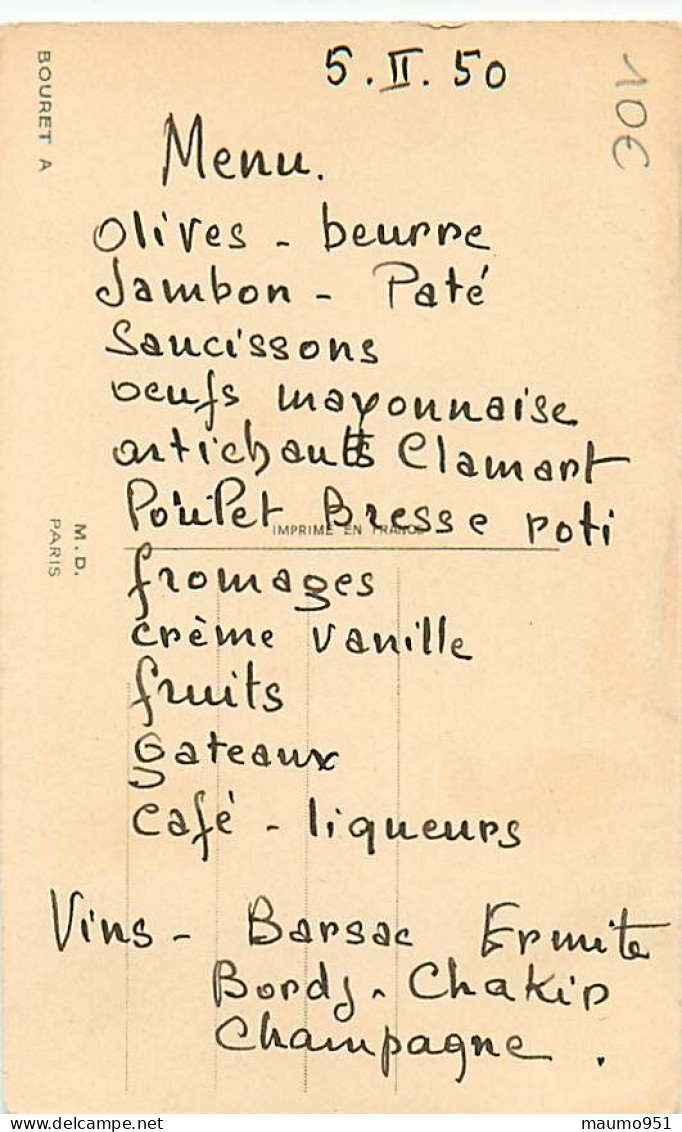 5.II.50
10€
BOURET A
Menu.
Olives - beurre
Jambon - Paté
Saucissons
oeufs mayonnaise
artichauts Clamart
Poulet Bresse roti
IMPRIMÉ EN FRANCE
M. D.
PARIS
fromages
crème vanille
fruits
gateaux
café - liqueurs
Vins - Barsac Ermite
Bordj - Chakir
Champagne.
maumo951